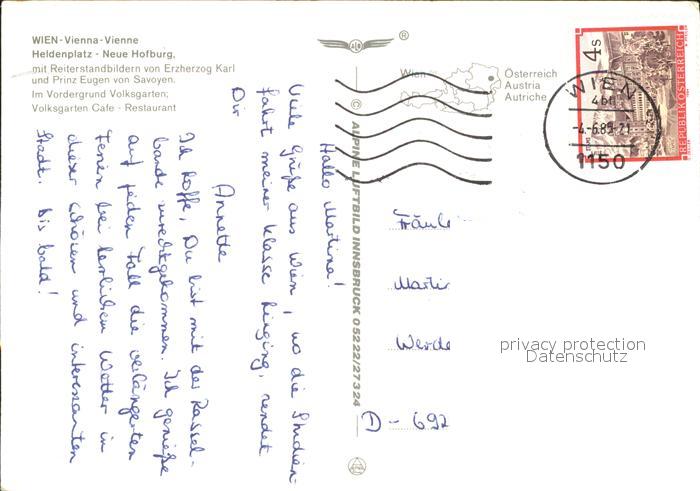 WIEN-Vienna-Vienne
Heldenplatz - Neue Hofburg,
mit Reiterstandbildern von Erzherzog Karl
und Prinz Eugen von Savoyen.
Im Vordergrund Volksgarten;
Volksgarten Cafe - Restaurant
®
Wien
Österreich
Austria
Autriche
4s
REPUBLIK ÖSTERREICH
WIEN
-4.-6.89-21
1150
© ALPINE LUFTBILD INNSBRUCK 05222/27324
Hallo Martina!
Viele Grüße aus Wien, wo die Studien-
fahrt meiner Klasse hinging, sendet
Dir
Annette
Ich hoffe, Du bist mit der Rassel-
bande zurechtgekommen. Ich genieße
auf jeden Fall die verlängerten
Ferien bei herrlichem Wetter in
dieser schönen und interessanten
Stadt. Bis bald!
Fräule
Martin
Werde
D - 692
privacy protection
Datenschutz